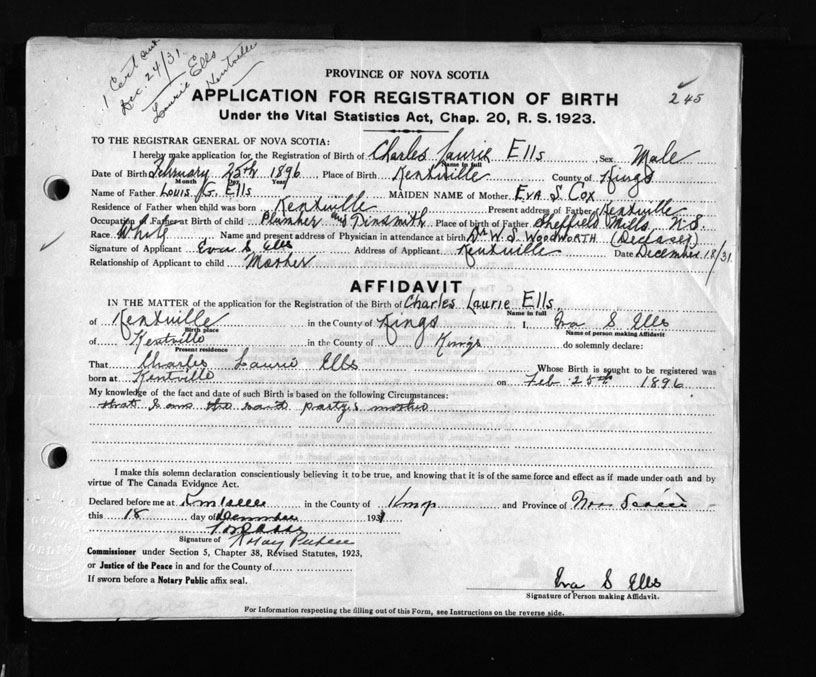 1 Cert out
Dec. 24/31
Laurie Ells
Kentville
245
PROVINCE OF NOVA SCOTIA
APPLICATION FOR REGISTRATION OF BIRTH
Under the Vital Statistics Act, Chap. 20, R. S. 1923.
TO THE REGISTRAR GENERAL OF NOVA SCOTIA:
I hereby make application for the Registration of Birth of Charles Laurie Ells Sex Male
Name in full
Date of Birth February 25th 1896 Place of Birth Kentville County of Kings
Month Day Year
Name of Father Louis G. Ells MAIDEN NAME of Mother Eva S Cox
Residence of Father when child was born Kentville Present address of Father Kentville
Occupation of Father at Birth of child Plumber and Tinsmith Place of birth of Father Sheffield Mills, N.S.
Race White Name and present address of Physician in attendance at birth Dr W. S. Woodworth (Deceased)
Signature of Applicant Eva S. Ells Address of Applicant Kentville Date December 18/31
Relationship of Applicant to child Mother
AFFIDAVIT
IN THE MATTER of the application for the Registration of the Birth of Charles Laurie Ells
Name in full
of Kentville in the County of Kings I, Eva S Ells
Birth place Name of person making Affidavit
of Kentville in the County of Kings do solemnly declare:
Present residence
That Charles Laurie Ells Whose Birth is sought to be registered was
born at Kentville on Feb 25th 1896
My knowledge of the fact and date of such Birth is based on the following Circumstances:
that I am the said partys mother
I make this solemn declaration conscientiously believing it to be true, and knowing that it is of the same force and effect as if made under oath and by
virtue of The Canada Evidence Act.
Declared before me at Kentville in the County of Kings and Province of Nova Scotia
this 18 day of December 1931
Signature of Notary Public
Commissioner under Section 5, Chapter 38, Revised Statutes, 1923,
or Justice of the Peace in and for the County of
If sworn before a Notary Public affix seal.
Eva S Ells
Signature of Person making Affidavit.
For Information respecting the filling out of this Form, see Instructions on the reverse side.